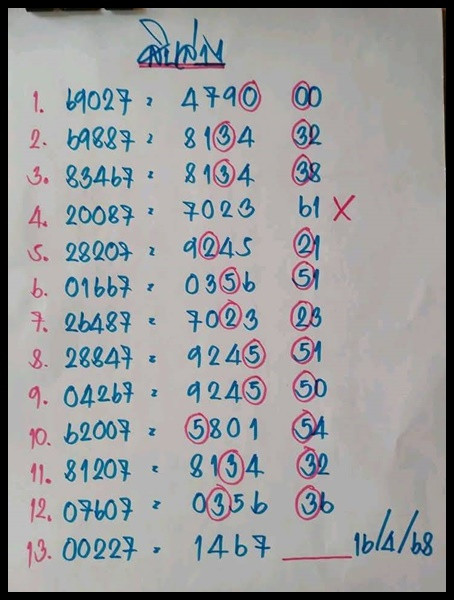 สิบล่าง
1. 69027 = 4790 00
2. 69887 = 8134 32
3. 83467 = 8134 38
4. 20087 = 7023 61 X
5. 28207 = 9245 21
6. 01667 = 0356 51
7. 26487 = 7023 23
8. 28847 = 9245 51
9. 04267 = 9245 50
10. 62007 = 5801 54
11. 81207 = 8134 32
12. 07607 = 0356 36
13. 00227 = 1467 ____ 16/4/68